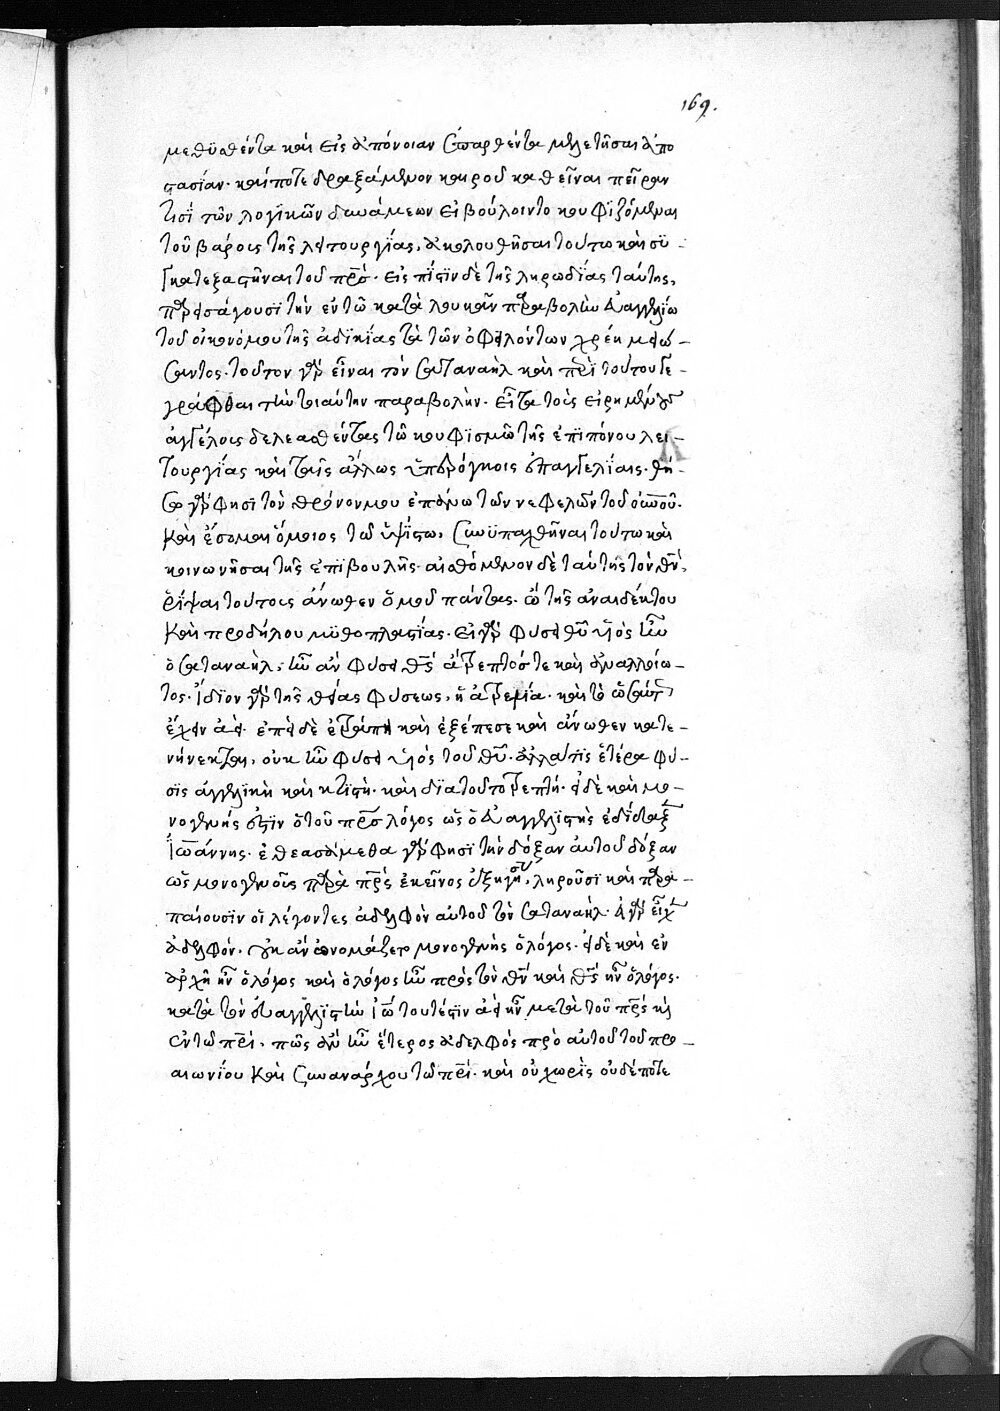 169.
μεθυσθέντα καὶ εἰς ἀπόνοιαν ἐπαρθέντα μελετῆσαι ἀπο
στασίαν· καί ποτε δραξάμενον καιροῦ καθεῖναι πεῖραν
τισὶ τῶν λογικῶν δυνάμεων εἰ βούλοιντο κουφιζόμεναι
τοῦ βάρους τῆς λειτουργίας, ἀκολουθῆσαι τούτω καὶ συ-
γκατεξαστῆναι τοῦ πρσ· εἰς πίστϊν δὲ τῆς ληρωδίας ταύτης,
παρεισάγουσϊ τὴν ἐν τῶ κατὰ λουκᾶν παραβολὴν εὐαγγελίω
τοῦ οἰκονόμου τῆς ἀδικίας τὰ τῶν ὀφειλόντων χρέη μειώ-
σαντος· τοῦτον γὰρ εἶναι τὸν σαταναὴλ καὶ περὶ τούτου γε-
γράφθαι τὴν τοιαύτην παραβολήν· εἶτα τοὺς εἰρημένους
ἀγγέλους δελεασθέντας τῶ κουφϊσμῶ τῆς ἐπιπόνου λει-
τουργίας καὶ ταῖς ἄλλαις ὑπερόγκοις ἐπαγγελίαις· θή-
σω γὰρ φησὶ τὸν θρόνον μου ἐπάνω τῶν νεφελῶν τοῦ οὐνοῦ·
καὶ ἔσομαι ὅμοιος τῶ ὑψίστω, συνϋπαχθῆναι τούτω καὶ
κοινωνῆσαι τῆς ἐπϊβουλῆς· αἰσθόμενον δὲ ταύτης τὸν θν,
ῥῖψαι τούτους ἄνωθεν ὁμοῦ πάντας· ὢ τῆς ἀναιδέκτου
καὶ προδήλου μϋθοπλαστίας· εἰ γὰρ φύσει θῦ υἱὸς ἦν
ὁ σαταναήλ, ἦν ἂν φύσει θς ἄτρεπτός τε καὶ ἀναλλοίω-
τος· ἴδϊον γὰρ τῆς θείας φύσεως, ἡ ἀτρεψία· καὶ τὸ ὡσαύτως
ἔχειν ἀεί· ἐπεὶ δὲ ἐτράπη καὶ ἐξέπεσε καὶ ἄνωθεν κατε-
νήνεκται, οὐκ ἦν φύσει υἱὸς τοῦ θῦ· ἀλλά τις ἑτέρα φύ-
σϊς ἀγγελικὴ καὶ κτιστή· καὶ διὰ τοῦτο τρεπτή· εἰ δὲ καὶ μο-
νογενής ἐστϊν ὁ τοῦ πρσ λόγος ὡς ὁ εὐαγγελϊστὴς ἐδίδαξεν
ἰωάννης· ἐθεασάμεθα γὰρ φησὶ τὴν δόξαν αὐτοῦ δόξαν
ὡς μονογενοῦς παρὰ πρς ἐκεῖνος ἐξηγήσατο, ληροῦσϊ καὶ παρα-
παίουσϊν οἱ λέγοντες ἀδελφὸν αὐτοῦ τὸν σαταναήλ· εἰ γὰρ εἶχεν
ἀδελφόν, οὐκ ἂν ὠνομάζετο μονογενὴς ὁ λόγος· εἰ δὲ καὶ ἐν
ἀρχῆ ἦν ὁ λόγος καὶ ὁ λόγος ἦν πρὸς τὸν θν καὶ θς ἦν ὁ λόγος·
κατὰ τὸν εὐαγγελϊστὴν ἰω τουτέστϊν ἀεὶ ἦν μετὰ τοῦ πρς καὶ
ἐν τῶ πρι, πῶς ἂν ἦν ἕτερος ἀδελφὸς πρὸ αὐτοῦ τοῦ προ-
αιωνΐου καὶ συνανάρχου τῶ πρι· καὶ οὐ χωρὶς οὐδέποτε